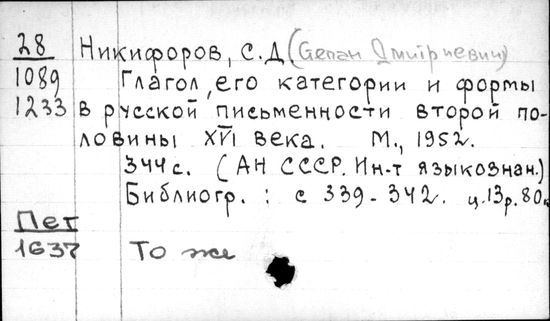 28 Никифоров, С.Д. (Степан Дмитриевич)
1089 Глагол, его категории и формы
1233 в русской письменности второй по-
ловины XVI века. М., 1952.
344 с. (АН СССР. Ин-т языкознан.)
Библиогр.: с 339-342. ц. 13р. 80к.
Пет
1637 То же